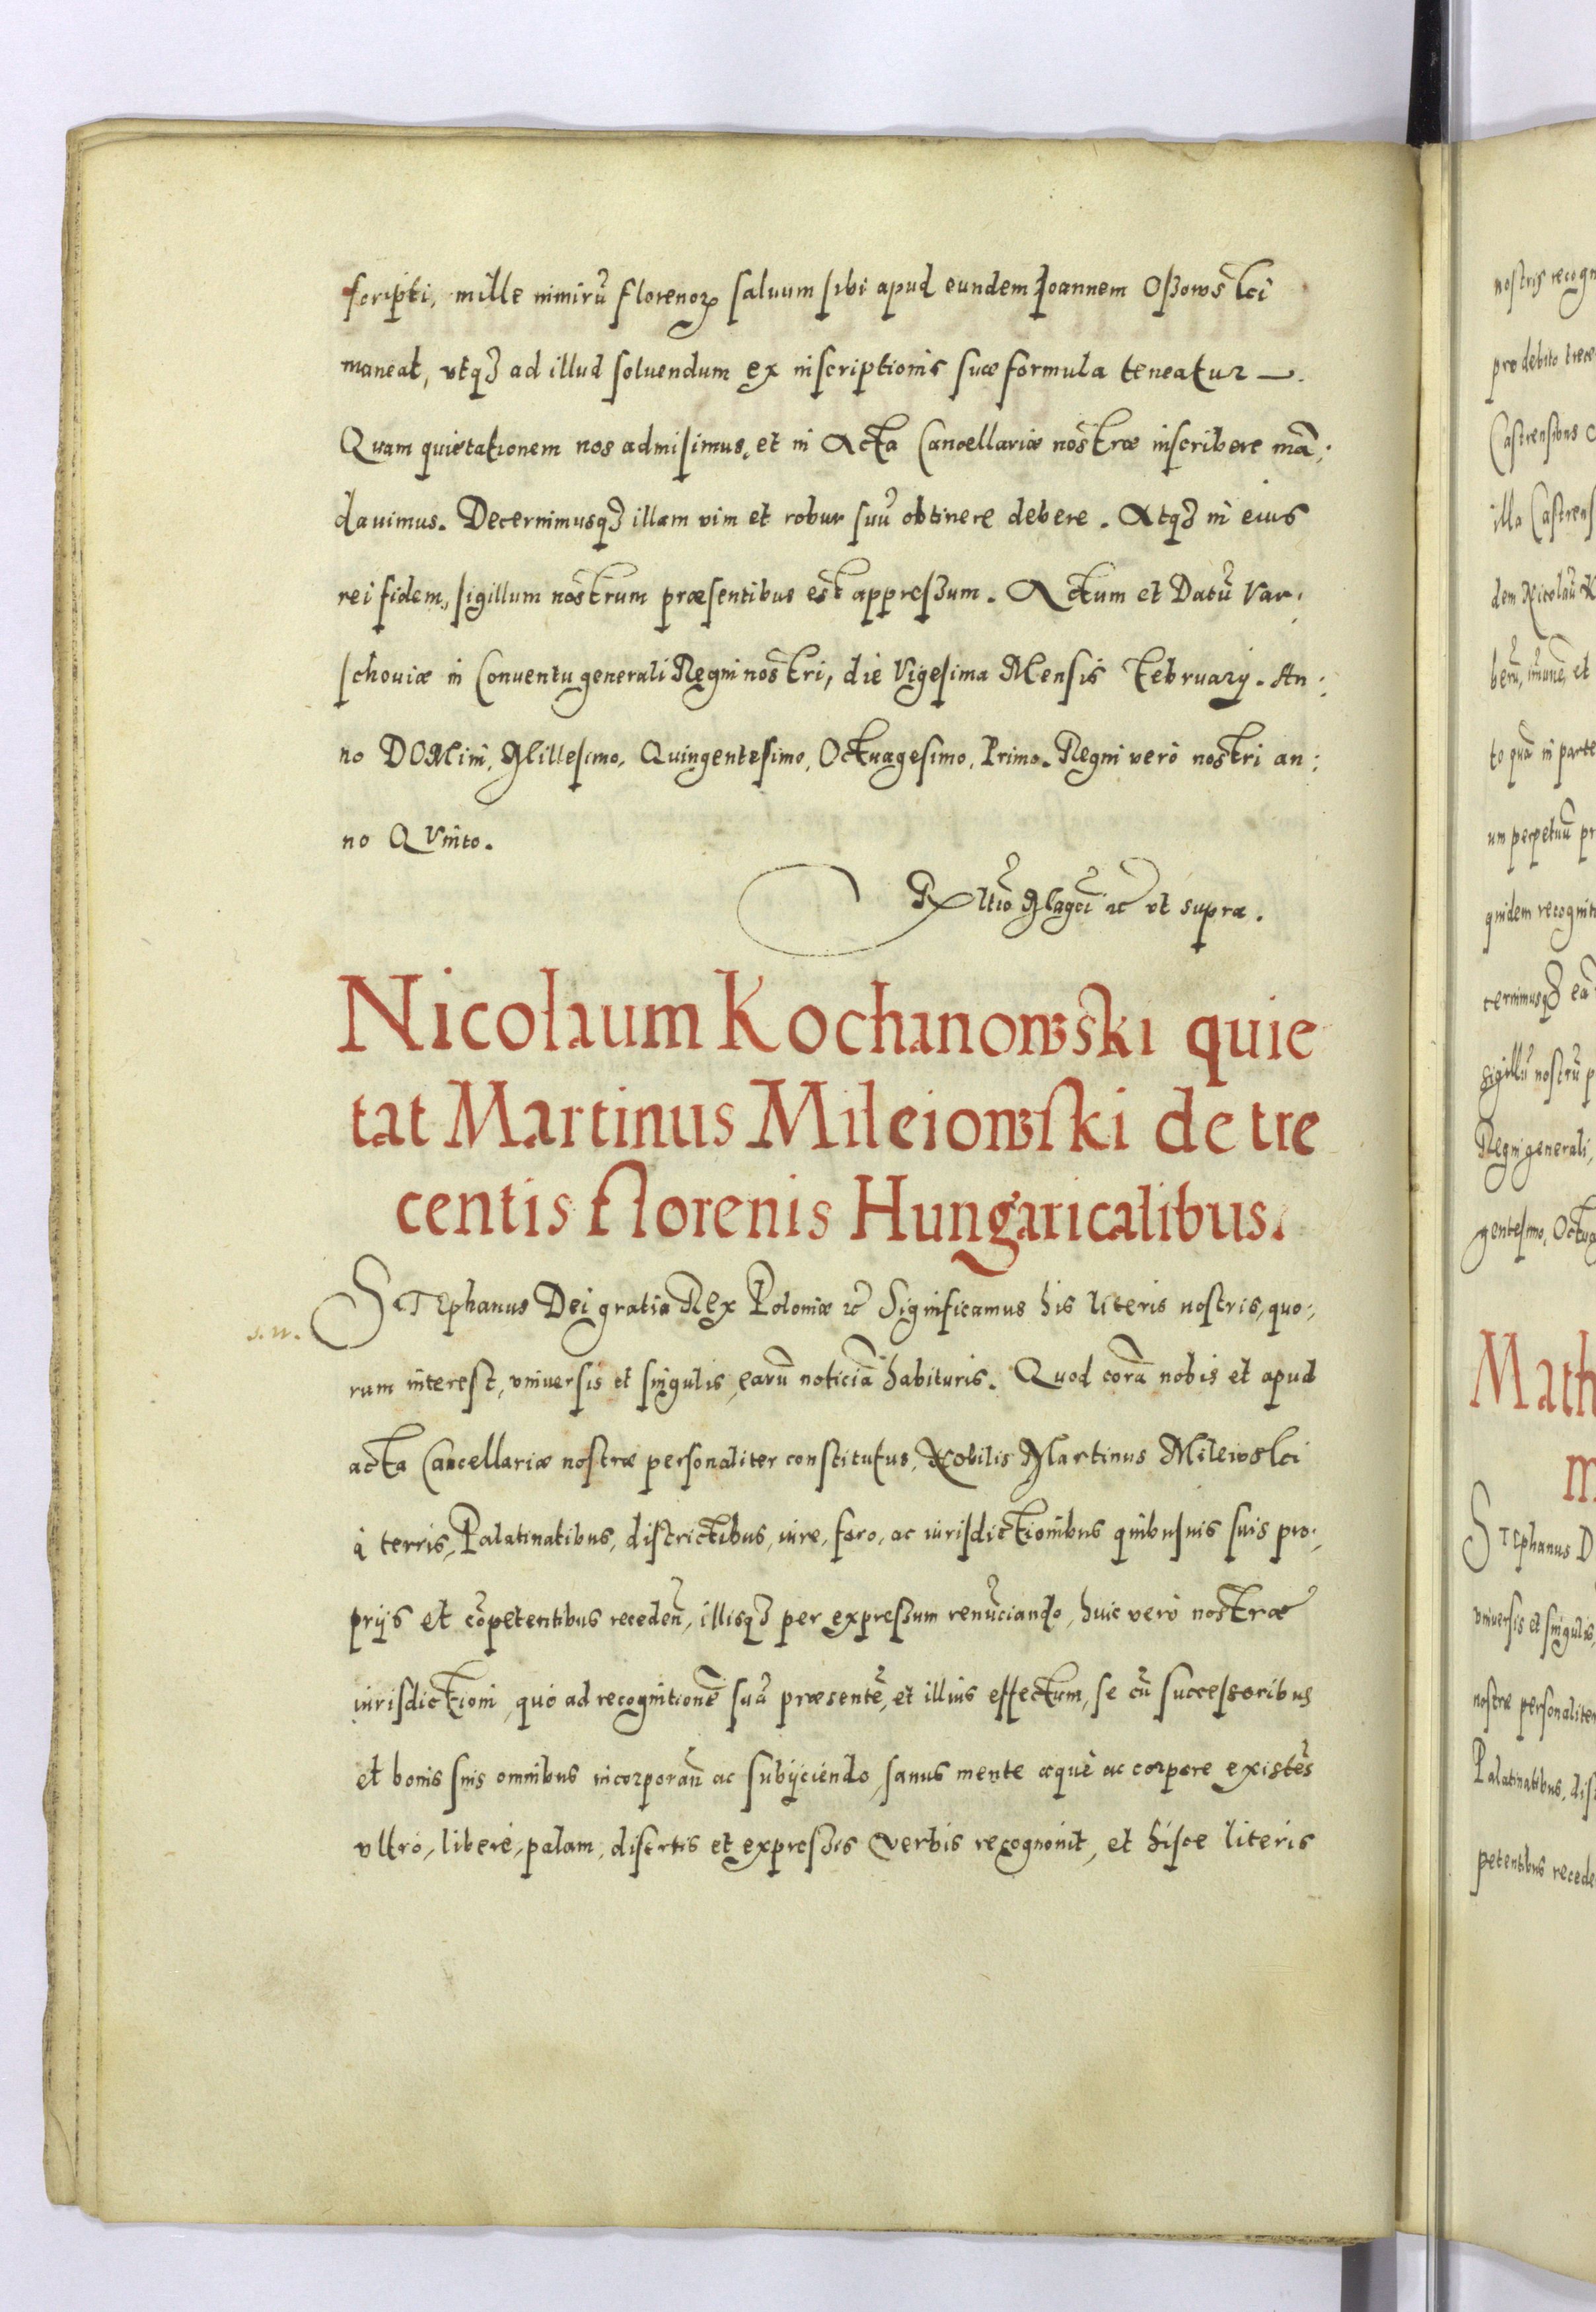 scripti, mille nimirũ florenoꝝ saluum sibi apud eundem Ioannem Oßowski
maneat, vtqꝫ ad illud soluendum ex inscriptionis suæ formula teneatur —.
Quam quietationem nos admisimus, et in Acta Cancellariæ nostræ inscribere mã:
dauimus. Decernimusqꝫ illam vim et robur suũ obtinere debere. Atqꝫ in eius
rei fidem, sigillum nostrum præsentibus est appreßum. Actum et Datũ Var:
schouiæ in Conuentu generali Regni nostri, die Vigesima Mensis February. An:
no DOMini, Millesimo, Quingentesimo, Octuagesimo, Primo. Regni verò nostri an:
no QVinto.
Rltio Magci ꝛc vt supra.
Nicolaum Kochanowski quie
tat Martinus Mileiowski de tre
centis florenis Hungaricalibus.
STEphanus Dei gratia REx Poloniæ ꝛc Significamus his literis nostris, quo:
rum interest, vniuersis et singulis, earũ noticiã habituris. Quod corã nobis et apud
acta Cancellariæ nostræ personaliter constitutus, Nobilis Martinus Milewski
à terris, Palatinatibus, districtibus, iure, foro, ac iurisdictionibus quibusuis suis pro:
prijs et cõpetentibus recedeñ, illisqꝫ per expreßum renũciando, huic verò nostræ
iurisdictioni, quò ad recognitionẽ suã præsentẽ, et illius effectum, se cũ successoribus
et bonis suis omnibus incorporañ ac subijciendo, sanus mente æquè ac corpore existẽs
vltrò, liberè, palam, disertis et expreßis Verbis recognouit, et hisce literis
nostris recogn
pro debito trece
Castrensibus
illa Castrens
dem Nicolaũ K
berũ, im̃unẽ, et
to quã in parte
um perpetuũ pr
quidem recognit
cernimusqꝫ eã
sigillũ nostrũ p
Regni generali,
gentesimo, Octua
Math
m
STEphanus D
vniuersis et singulis,
nostræ personaliter
Palatinatibus, dis
petentibus recede